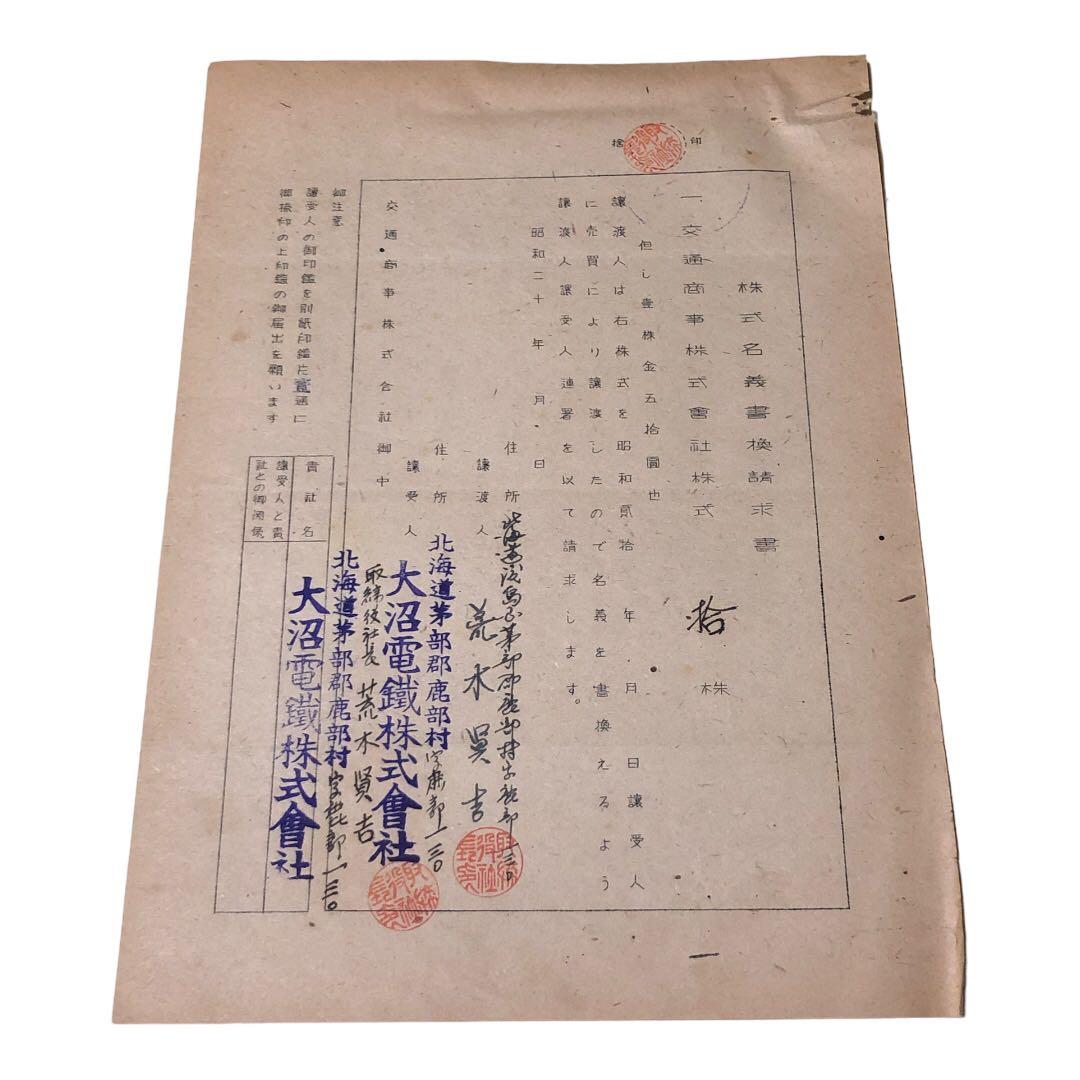 捨印
株式名義書換請求書
一、交通商事株式會社株式 拾 株
但し壹株金五拾圓也
讓渡人は右株式を昭和貳拾年 月 日讓受人
に売買により讓渡したので名義を書換えるよう
讓渡人讓受人連署を以て請求します。
昭和二十年 月 日
住所 北海道渡島國茅部郡鹿部村字鹿部一三〇
讓渡人 荒木賢吉
住所 北海道茅部郡鹿部村字鹿部一三〇
讓受人 大沼電鐵株式會社
取締役社長 荒木賢吉
交通商事株式会社御中
北海道茅部郡鹿部村字鹿部一三〇
大沼電鐵株式會社
貴社名
讓受人と貴
社との御関係
御注意
讓受人の御印鑑を別紙印鑑片壹通に
御捺印の上印鑑の御届出を願います